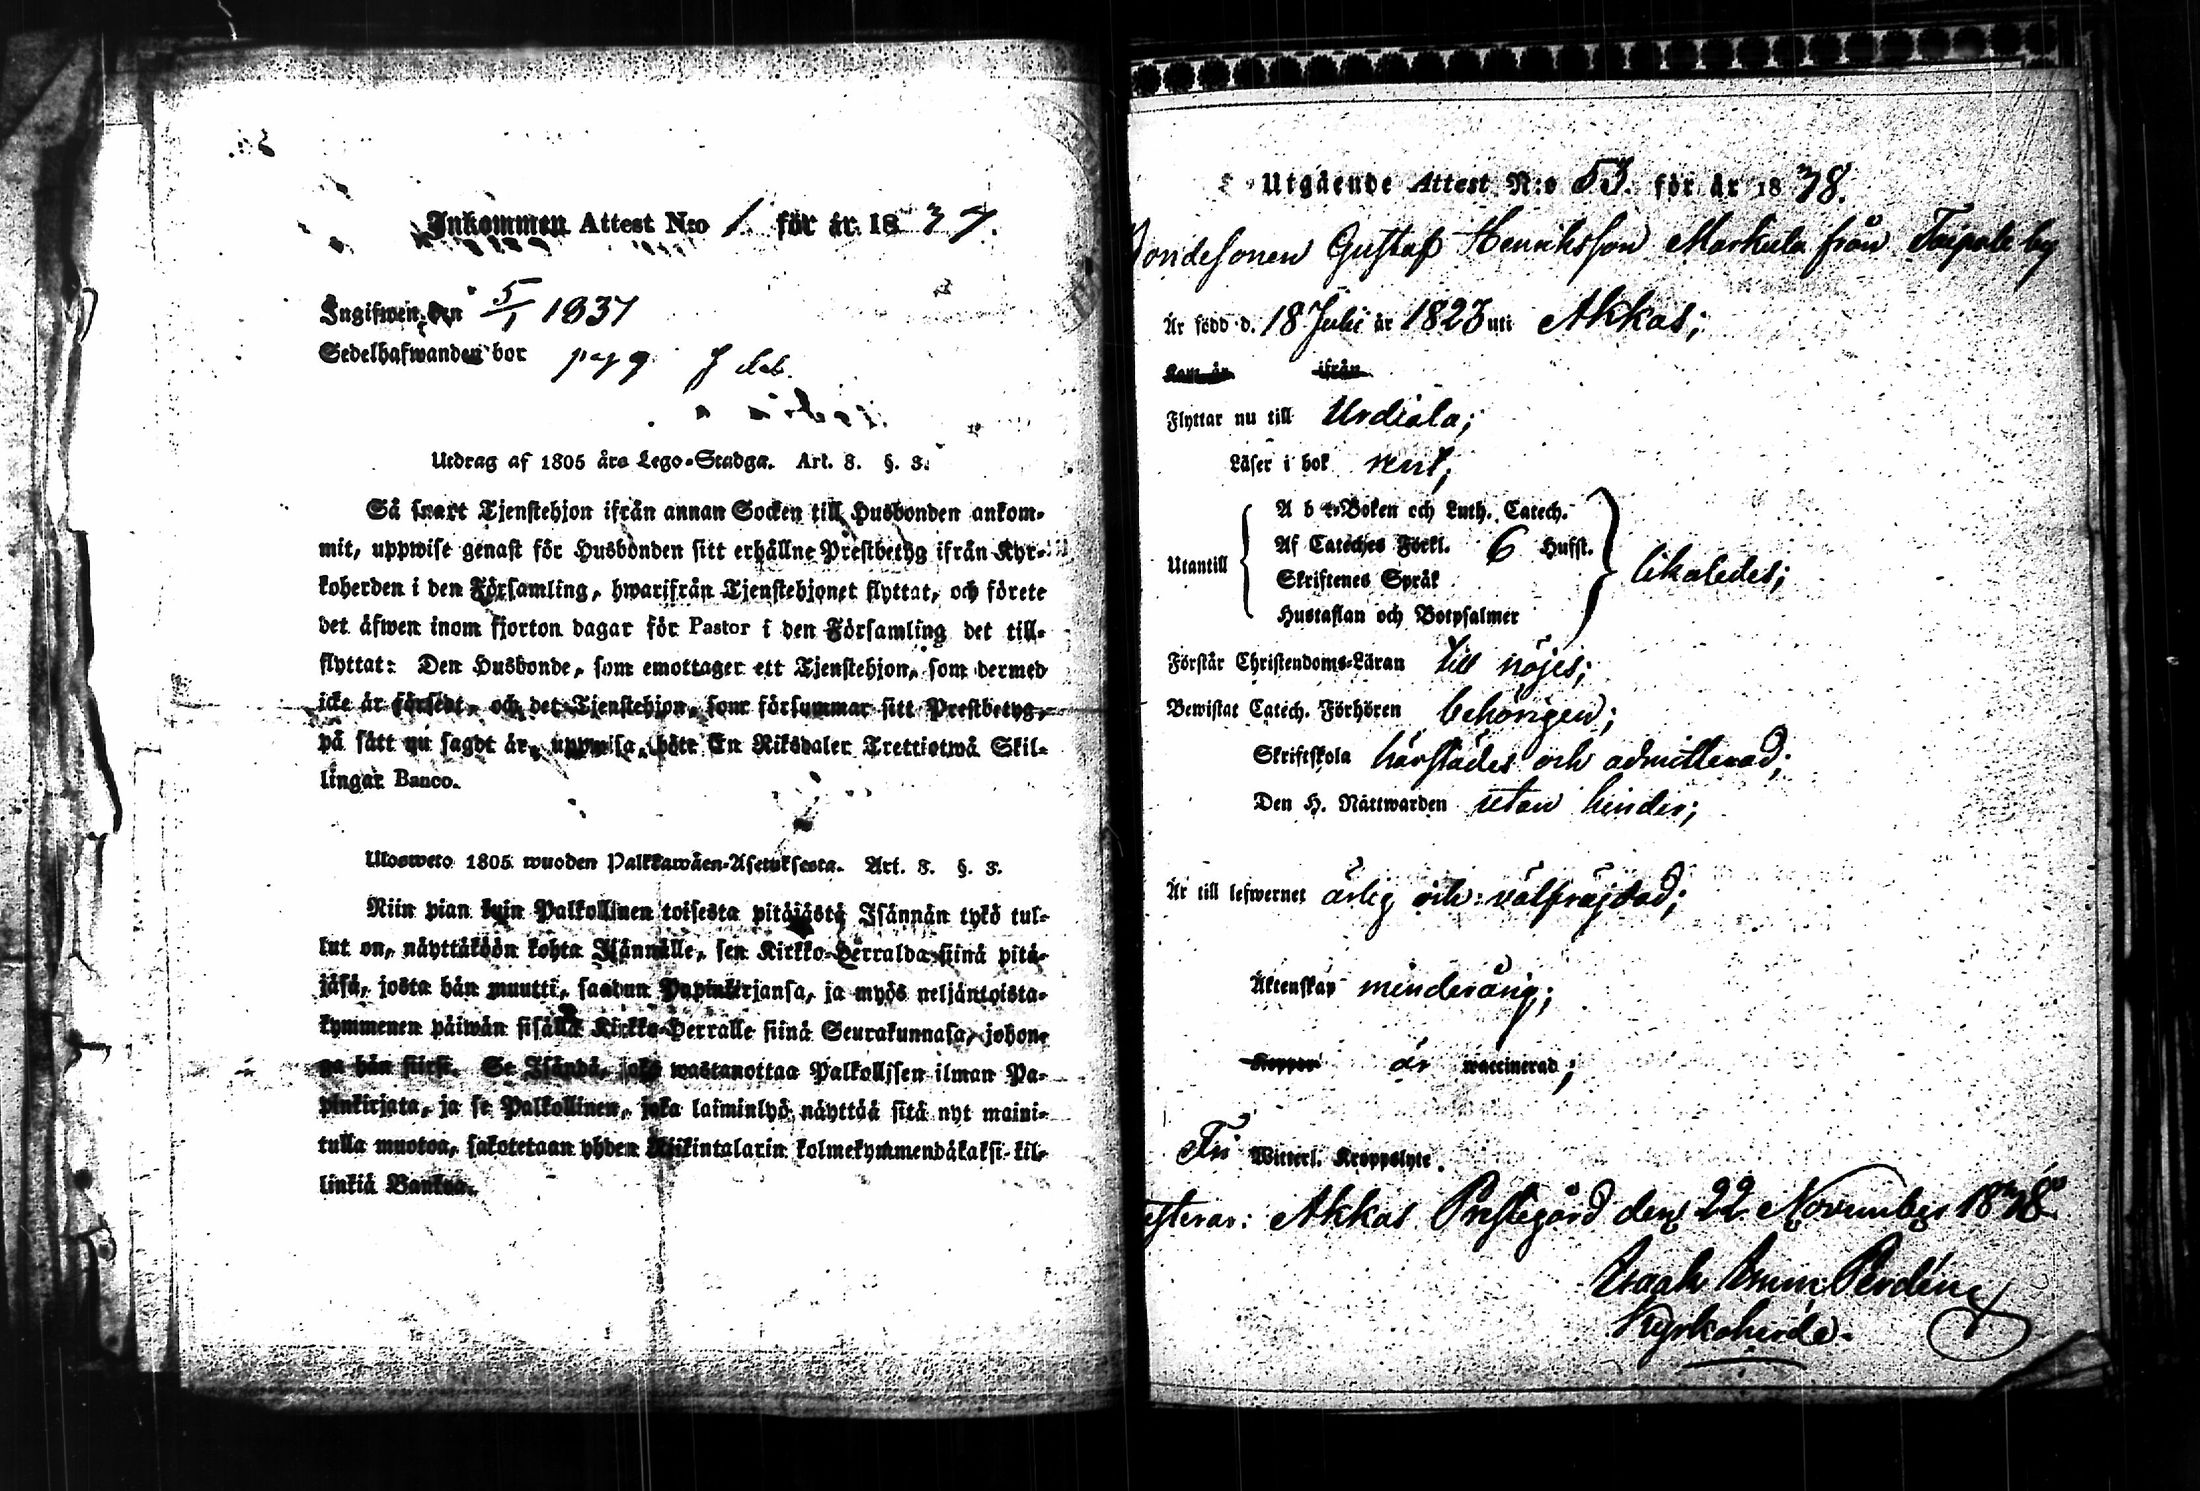 Inkommen Attest N:o 1 för år 1837.
Ingifwen den 5/1 1837
Sedelhafwanden bor
Utdrag af 1805 års Lego-Stadga. Art. 8. §. 3.
Så snart Tjenstehjon ifrån annan Socken till Husbonden ankom-
mit, uppwise genast för Husbonden sitt erhållne Prestbetyg ifrån Kyr-
koherden i den Församling, hwarifrån Tjenstehjonet flyttat, och förete
det äfwen inom fjorton dagar för Pastor i den Församling det till-
flyttat: Den Husbonde, som emottager ett Tjenstehjon, som dermed
icke är försedt, och det Tjenstehjon, som försummar sitt Prestbetyg,
på sätt nu sagdt är, uppwisa, böte En Riksdaler Trettiotwå Skil-
lingar Banco.
Ulosweto 1805 wuoden Palkkawäen-Asetuksesta. Art. 8. §. 3.
Niin pian kuin Palkollinen toisesta pitäjästä Isännän tykö tul-
lut on, näyttäköön kohta Isännälle, sen Kirkko-Herralda siinä pitä-
jäsä, josta hän muutti, saadun Papinkirjansa, ja myös neljäntoista-
kymmenen päiwän sisällä Kirkko-Herralle siinä Seurakunnasa, johon-
ga hän siirsi. Se Isändä, joka wastanottaa Palkollisen ilman Pa-
pinkirjata, ja se Palkollinen, joka laiminlyö näyttää sitä nyt maini-
tulla muotoa, sakotetaan yhden Riikintalarin kolmekymmendäkaksi kil-
linkiä Bankos.
Utgående Attest N:o 53. för år 1838.
Bondesonen Gustaf Henriksson Markula från Taipale by
Är född d. 18 Julii år 1823 uti Akkas;
Kom år ifrån
Flyttar nu till Urdiala;
Läser i bok rent;
A b c-Boken och Luth. Catech.
Af Cateches Förkl. 6 Hufst.
Utantill likaledes;
Skriftenes Språk
Hustaflan och Botpsalmer
Förstår Christendoms-Läran till nöjes;
Bewistat Catech. Förhören behörigen;
Skriftskola härstädes och admitterad;
Den H. Nattwarden utan hinder;
Är till lefwernet ärlig och wälfrägdad;
Äktenskap minderårig;
Koppor är waccinerad;
Fri Witterl. Kroppslyte.
esterar: Akkas Prestegård den 22 November 1838.
Isaak Emm: Perdén
Kyrkoherde.